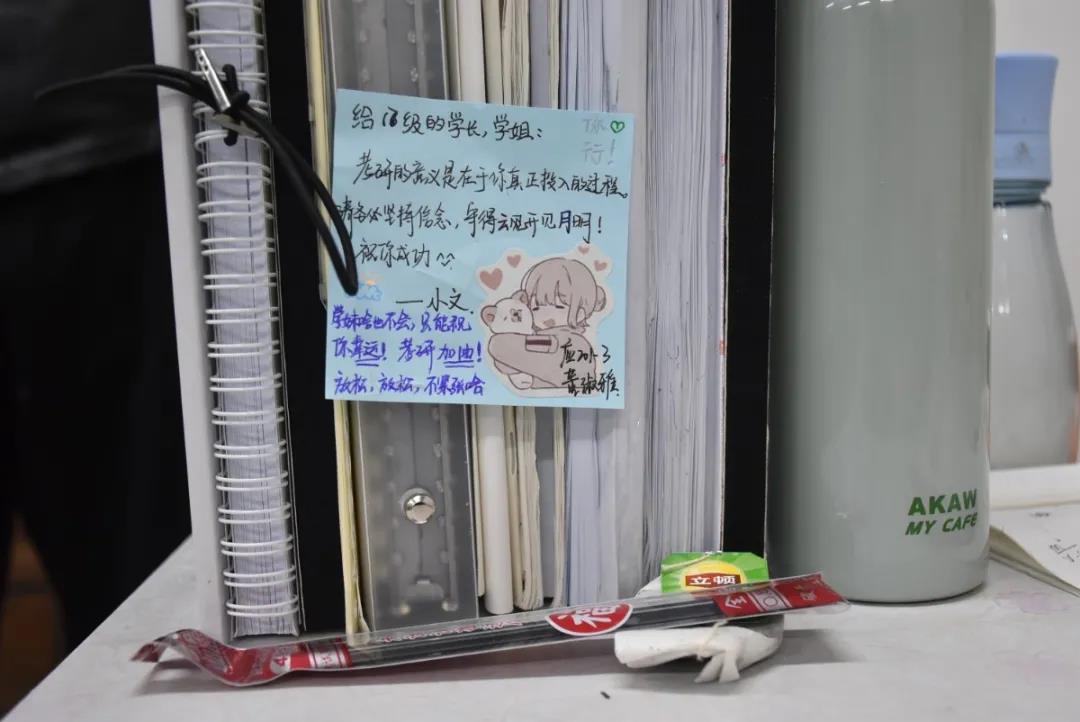 给17级的学长,学姐:
你
行!
考研的意义是在于你真正投入的过程。
请务必坚持信念,守得云见开见月明!
祝你成功
——小文.
学妹啥也不会,只能祝
你幸运! 考研加油!
放松,放松,不紧张哈
应201-3
淑雅
AKAW
MY CAFE
立顿
福